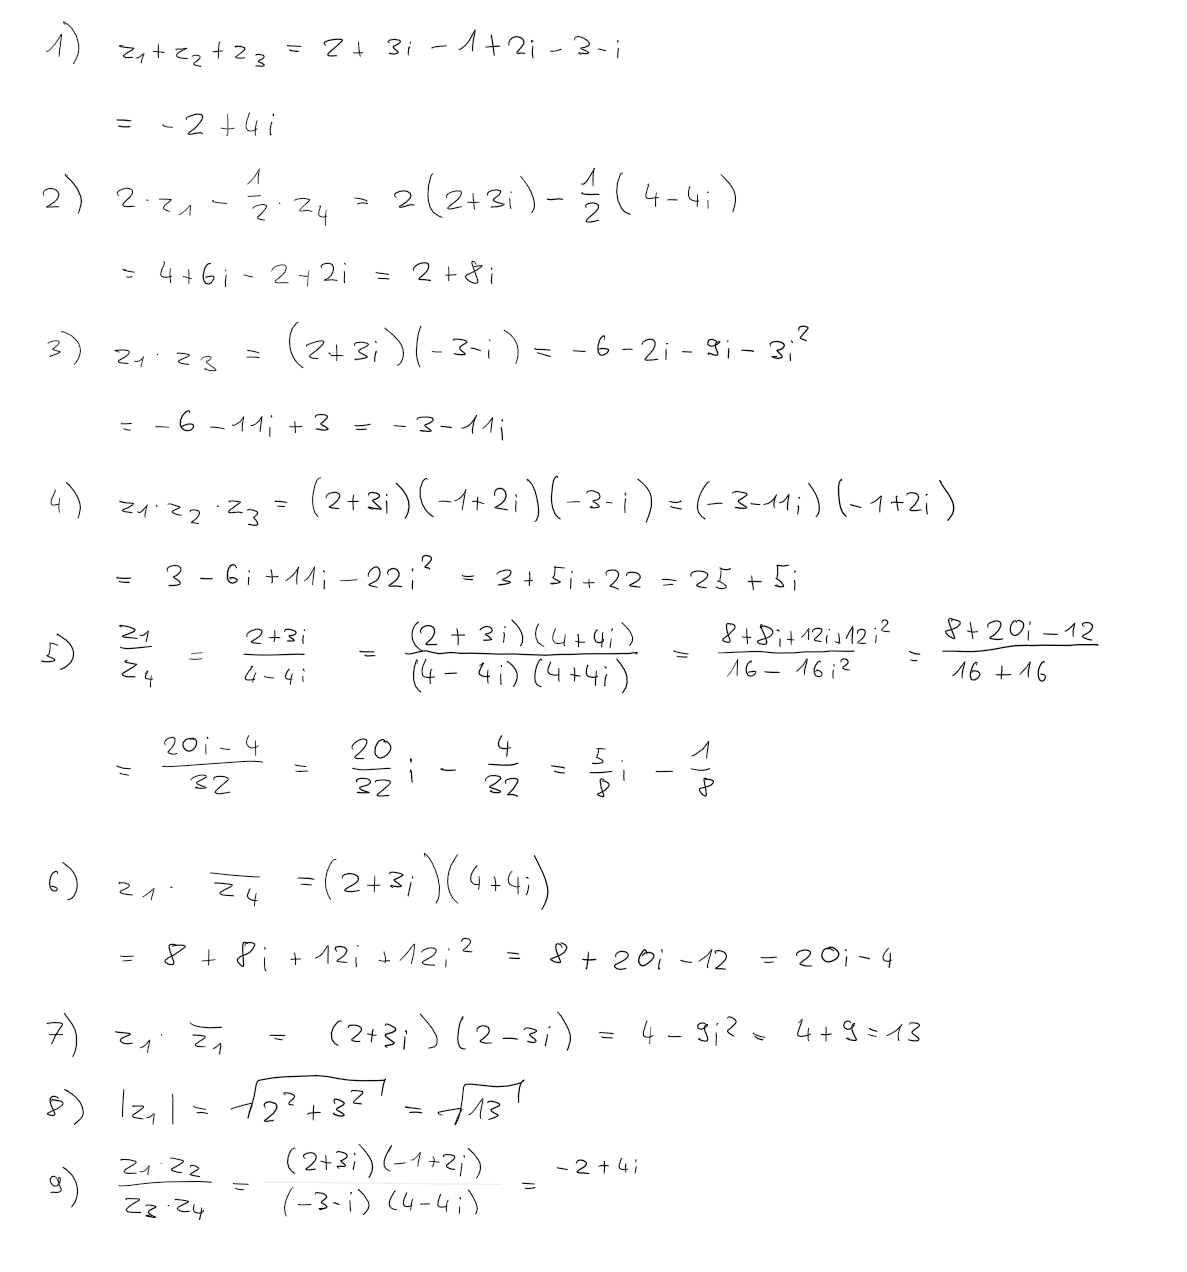 1) z₁+z₂+z₃ = 2+ 3i - 1+2i - 3-i
= -2 +4i
2) 2·z₁ - 1/2 · z₄ = 2(2+3i) - 1/2 (4-4i)
= 4+6i - 2+2i = 2+8i
3) z₁·z₃ = (2+3i)(-3-i) = -6-2i-9i-3i²
= -6-11i+3 = -3-11i
4) z₁·z₂·z₃ = (2+3i)(-1+2i)(-3-i) = (-3-11i)(-1+2i)
= 3-6i+11i-22i² = 3+5i+22 = 25+5i
5) z₁/z₄ = (2+3i)/(4-4i) = (2+3i)(4+4i)/(4-4i)(4+4i) = (8+8i+12i+12i²)/(16-16i²) = (8+20i-12)/(16+16)
= (20i-4)/32 = 20/32 i - 4/32 = 5/8 i - 1/8
6) z₁· z̅₄ = (2+3i)(4+4i)
= 8 + 8i + 12i + 12i² = 8+20i-12 = 20i-4
7) z₁· z̅₁ = (2+3i)(2-3i) = 4-9i² = 4+9=13
8) |z₁| = √(2²+3²) = √13
9) z₁·z₂/z₃·z₄ = (2+3i)(-1+2i)/(-3-i)(4-4i) = -2+4i